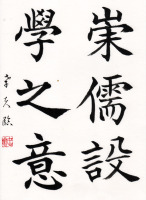 崇儒設
學之意